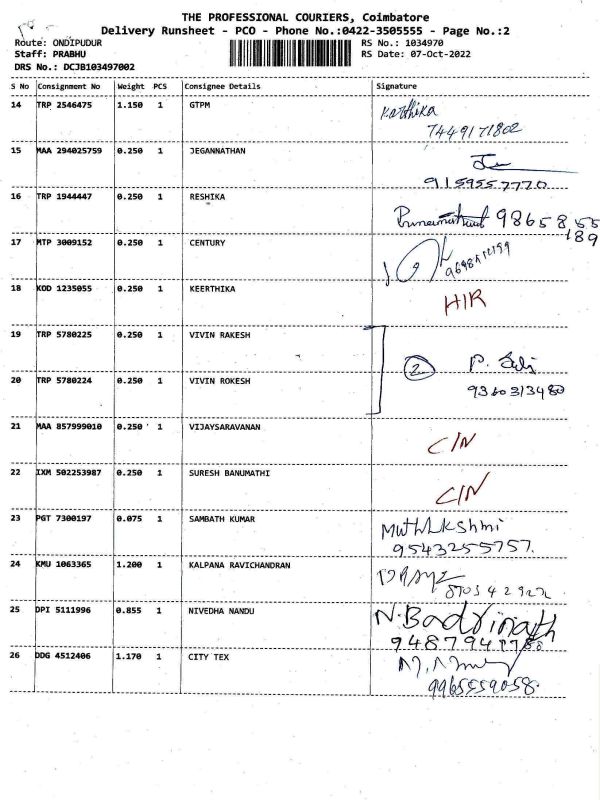 THE PROFESSIONAL COURIERS, Coimbatore
Delivery Runsheet - PCO - Phone No.:0422-3505555 - Page No.:2
Route: ONDIPUDUR RS No.: 1034970
Staff: PRABHU RS Date: 07-Oct-2022
DRS No.: DCJB103497002
S No Consignment No Weight PCS Consignee Details Signature
14 TRP 2546475 1.150 1 GTPM Karthika
7449171802
15 MAA 294025759 0.250 1 JEGANNATHAN
9159557770
16 TRP 1944447 0.250 1 RESHIKA 98658 55
189
17 MTP 3009152 0.250 1 CENTURY
18 KOD 1235055 0.250 1 KEERTHIKA H/R
19 TRP 5780225 0.250 1 VIVIN RAKESH
2 P.
20 TRP 5780224 0.250 1 VIVIN ROKESH
9360313480
21 MAA 857999010 0.250 1 VIJAYSARAVANAN C/N
22 IXM 502253987 0.250 1 SURESH BANUMATHI C/N
23 PGT 7300197 0.075 1 SAMBATH KUMAR Muthulkshmi
9543255757.
24 KMU 1063365 1.200 1 KALPANA RAVICHANDRAN
25 DPI 5111996 0.855 1 NIVEDHA NANDU N.Badrinath
26 DDG 4512406 1.170 1 CITY TEX
9965559058.